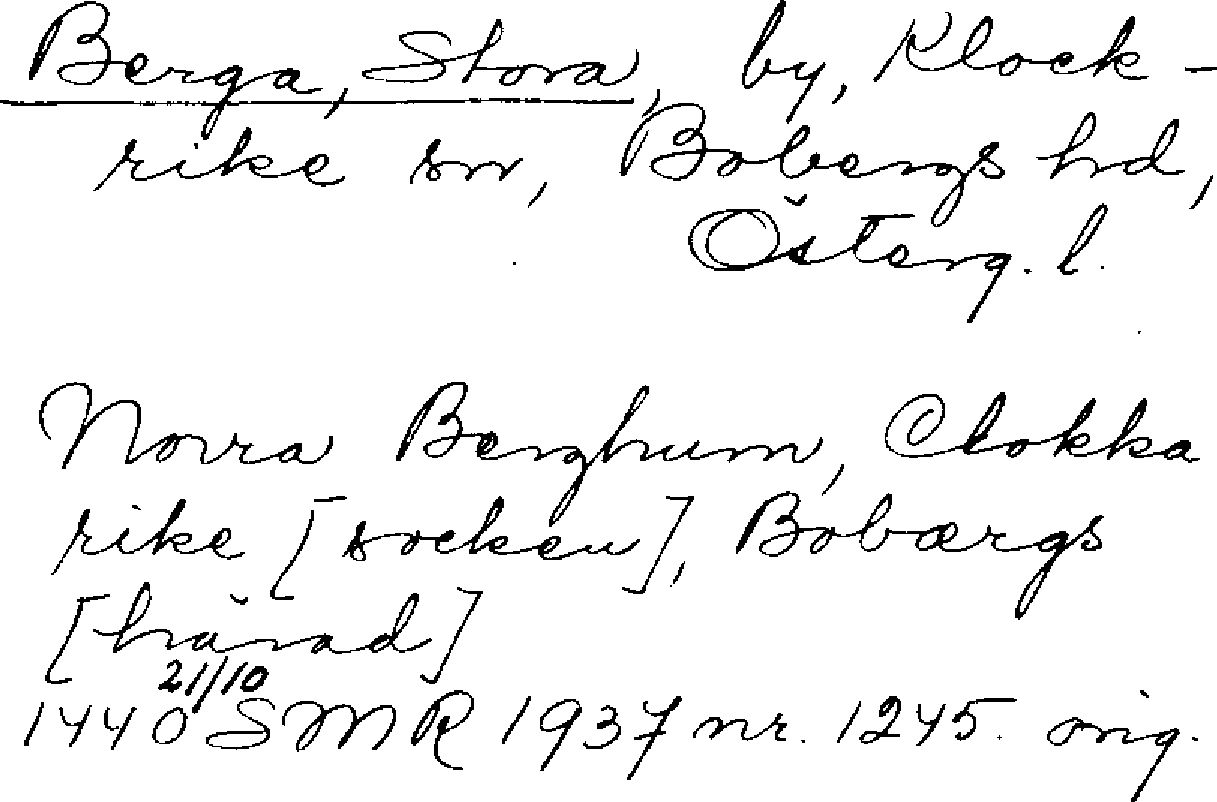 Berga, Stora, by, Klock-
rike sn, Bobergs hd,
Österg. l.
Norra Berghum, Clokka
rike [socken], Bobærgs
[härad]
21/10
1440 SMR 1937 nr. 1245. orig.